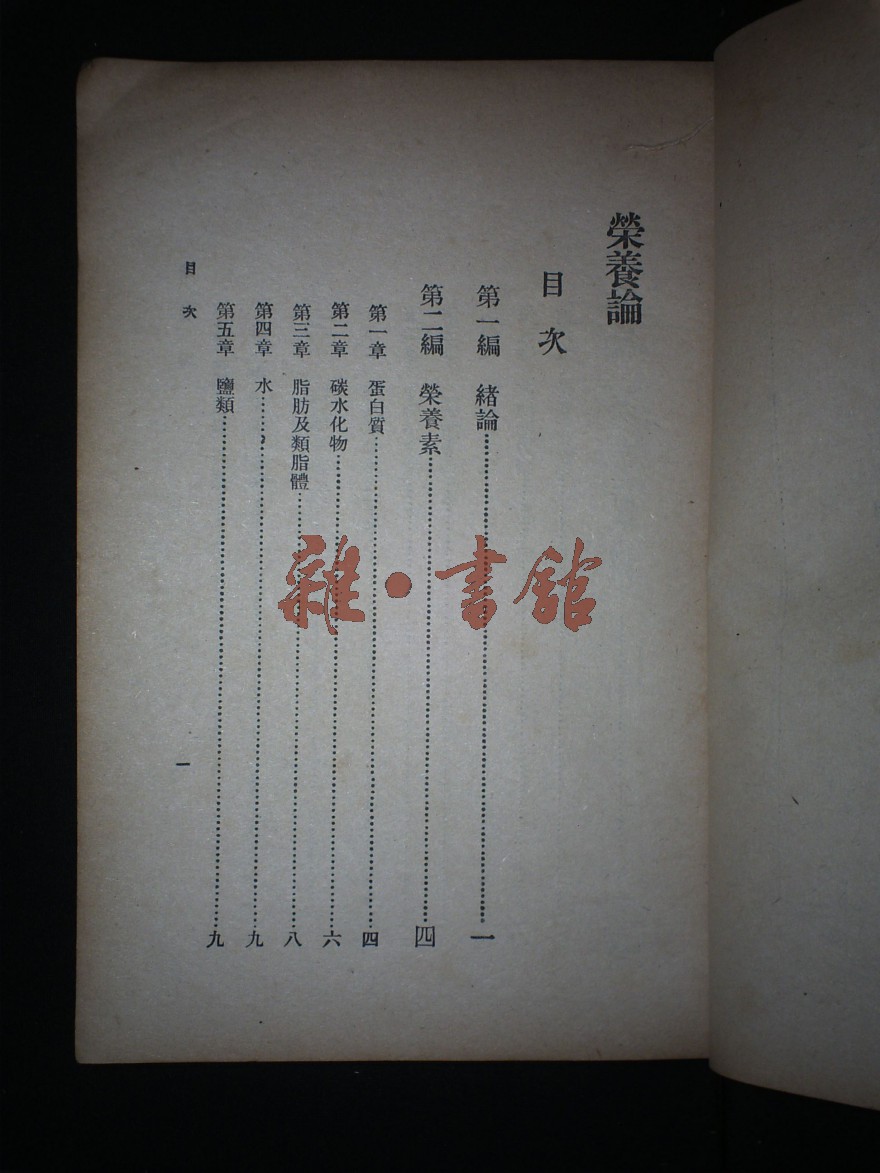 榮養論
目次
第一編 緒論………一
第二編 榮養素………四
第一章 蛋白質………四
第二章 碳水化物………六
第三章 脂肪及類脂體………八
第四章 水………九
第五章 鹽類………九
目次 一
雜·書館